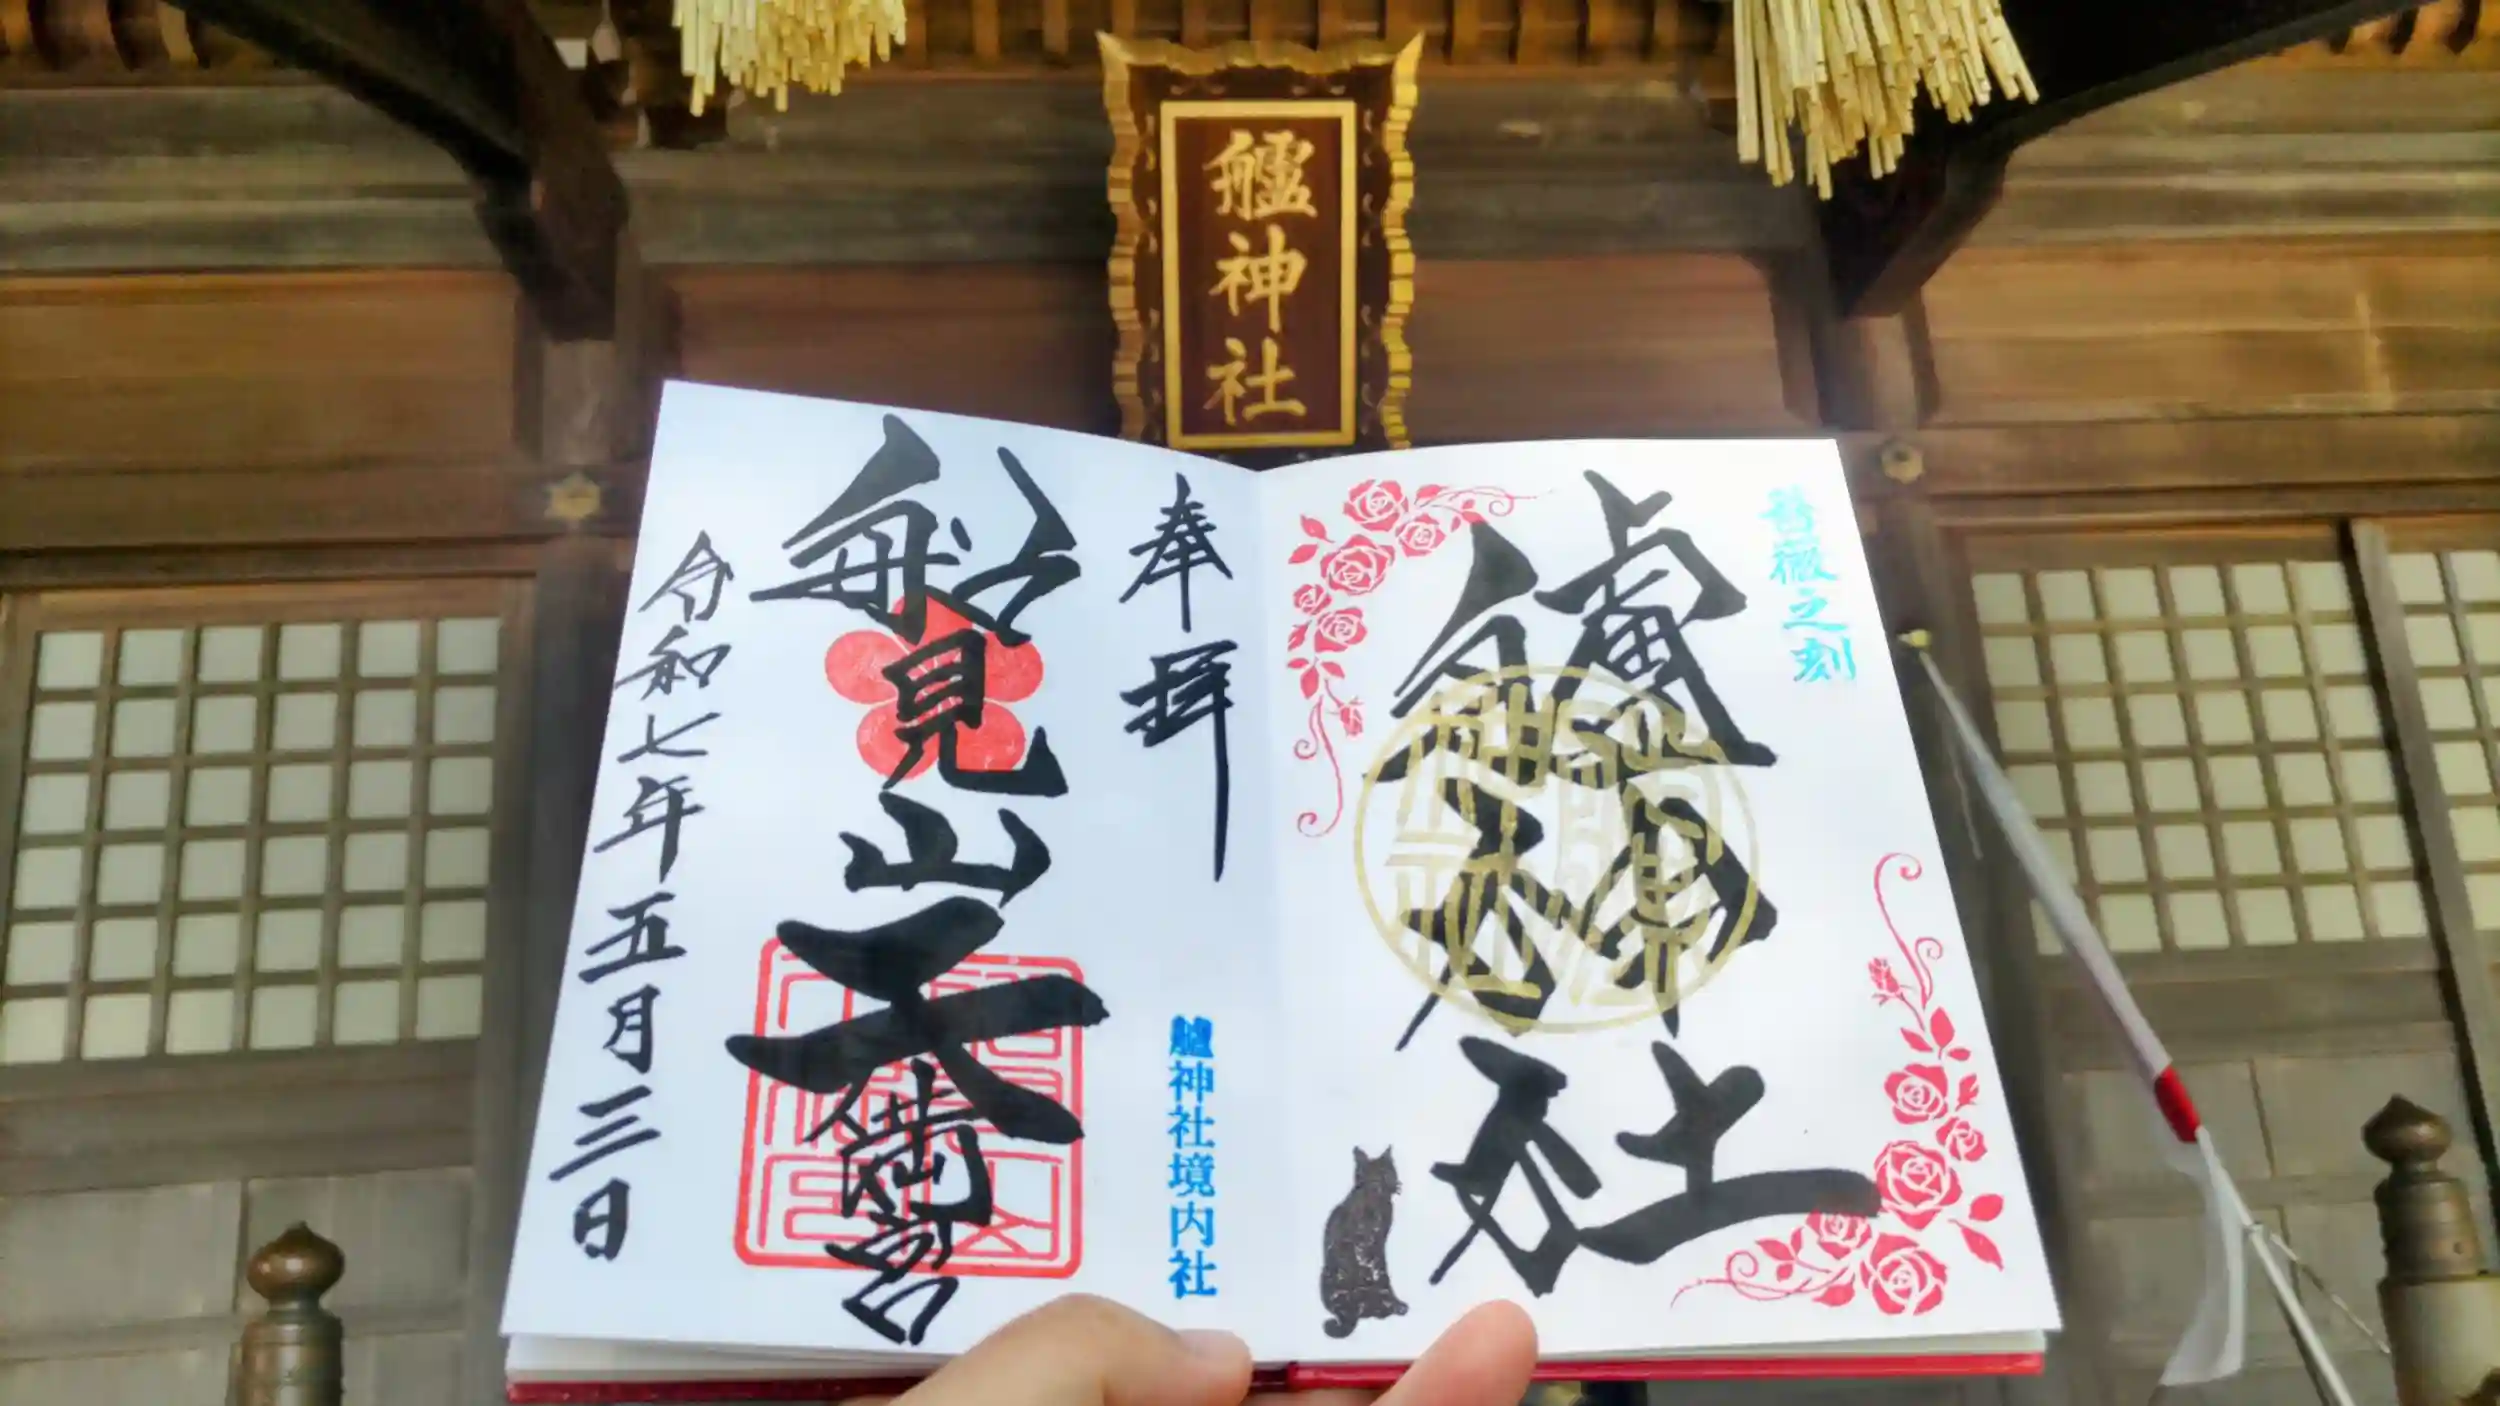 艫神社
薔薇之刻
艫神社
奉拝
艫神社境内社
船見山天満宮
令和七年五月三日